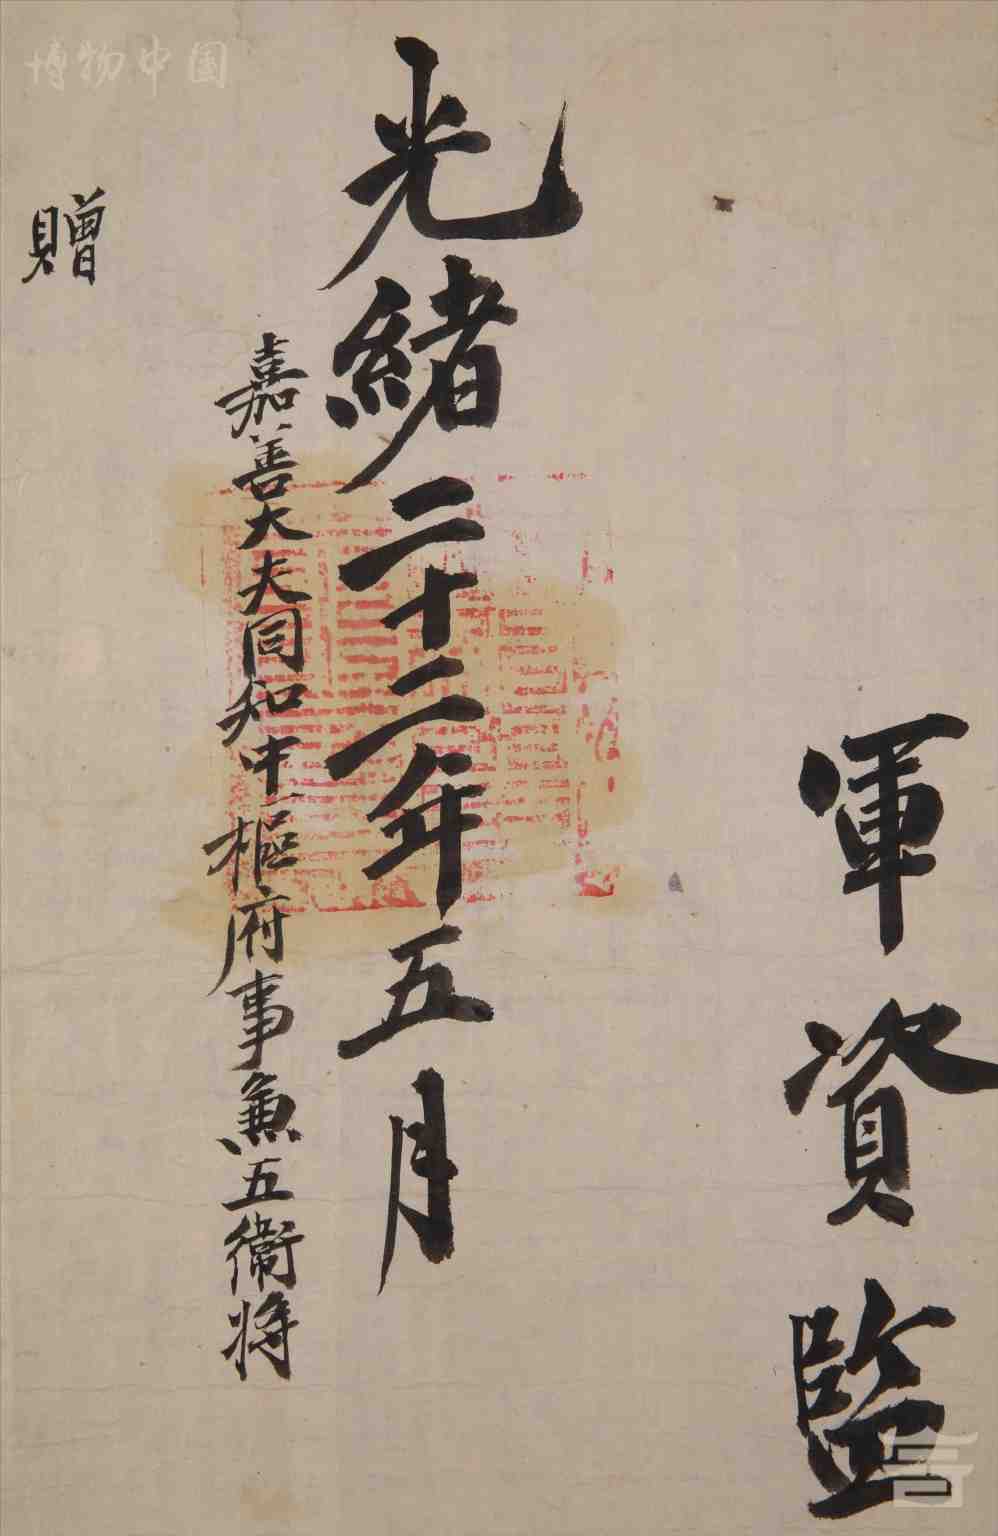 軍資監
光緒二十二年五月
嘉善大夫同知中樞府事兼五衛將
贈
博物中国